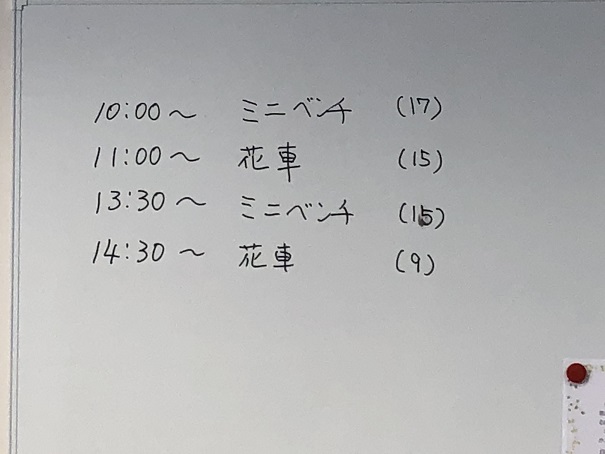 10:00～ ミニベンチ (17)
11:00～ 花車 (15)
13:30～ ミニベンチ (15)
14:30～ 花車 (9)